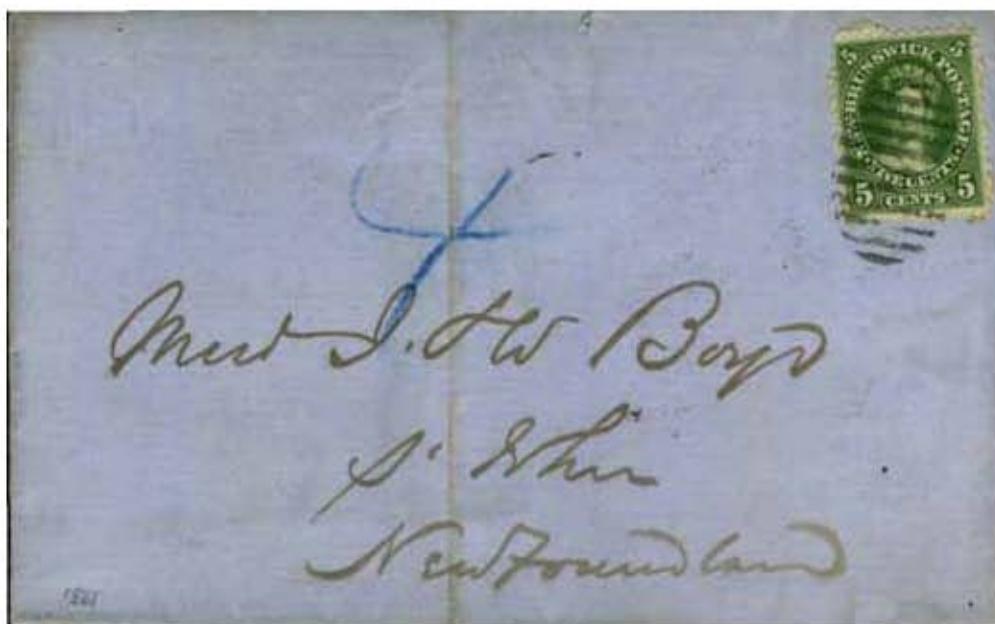 5 5
BRUNSWICK POSTAGE
5 CENTS 5
4
Mess J. & W Boyd
St Johns
Newfoundland